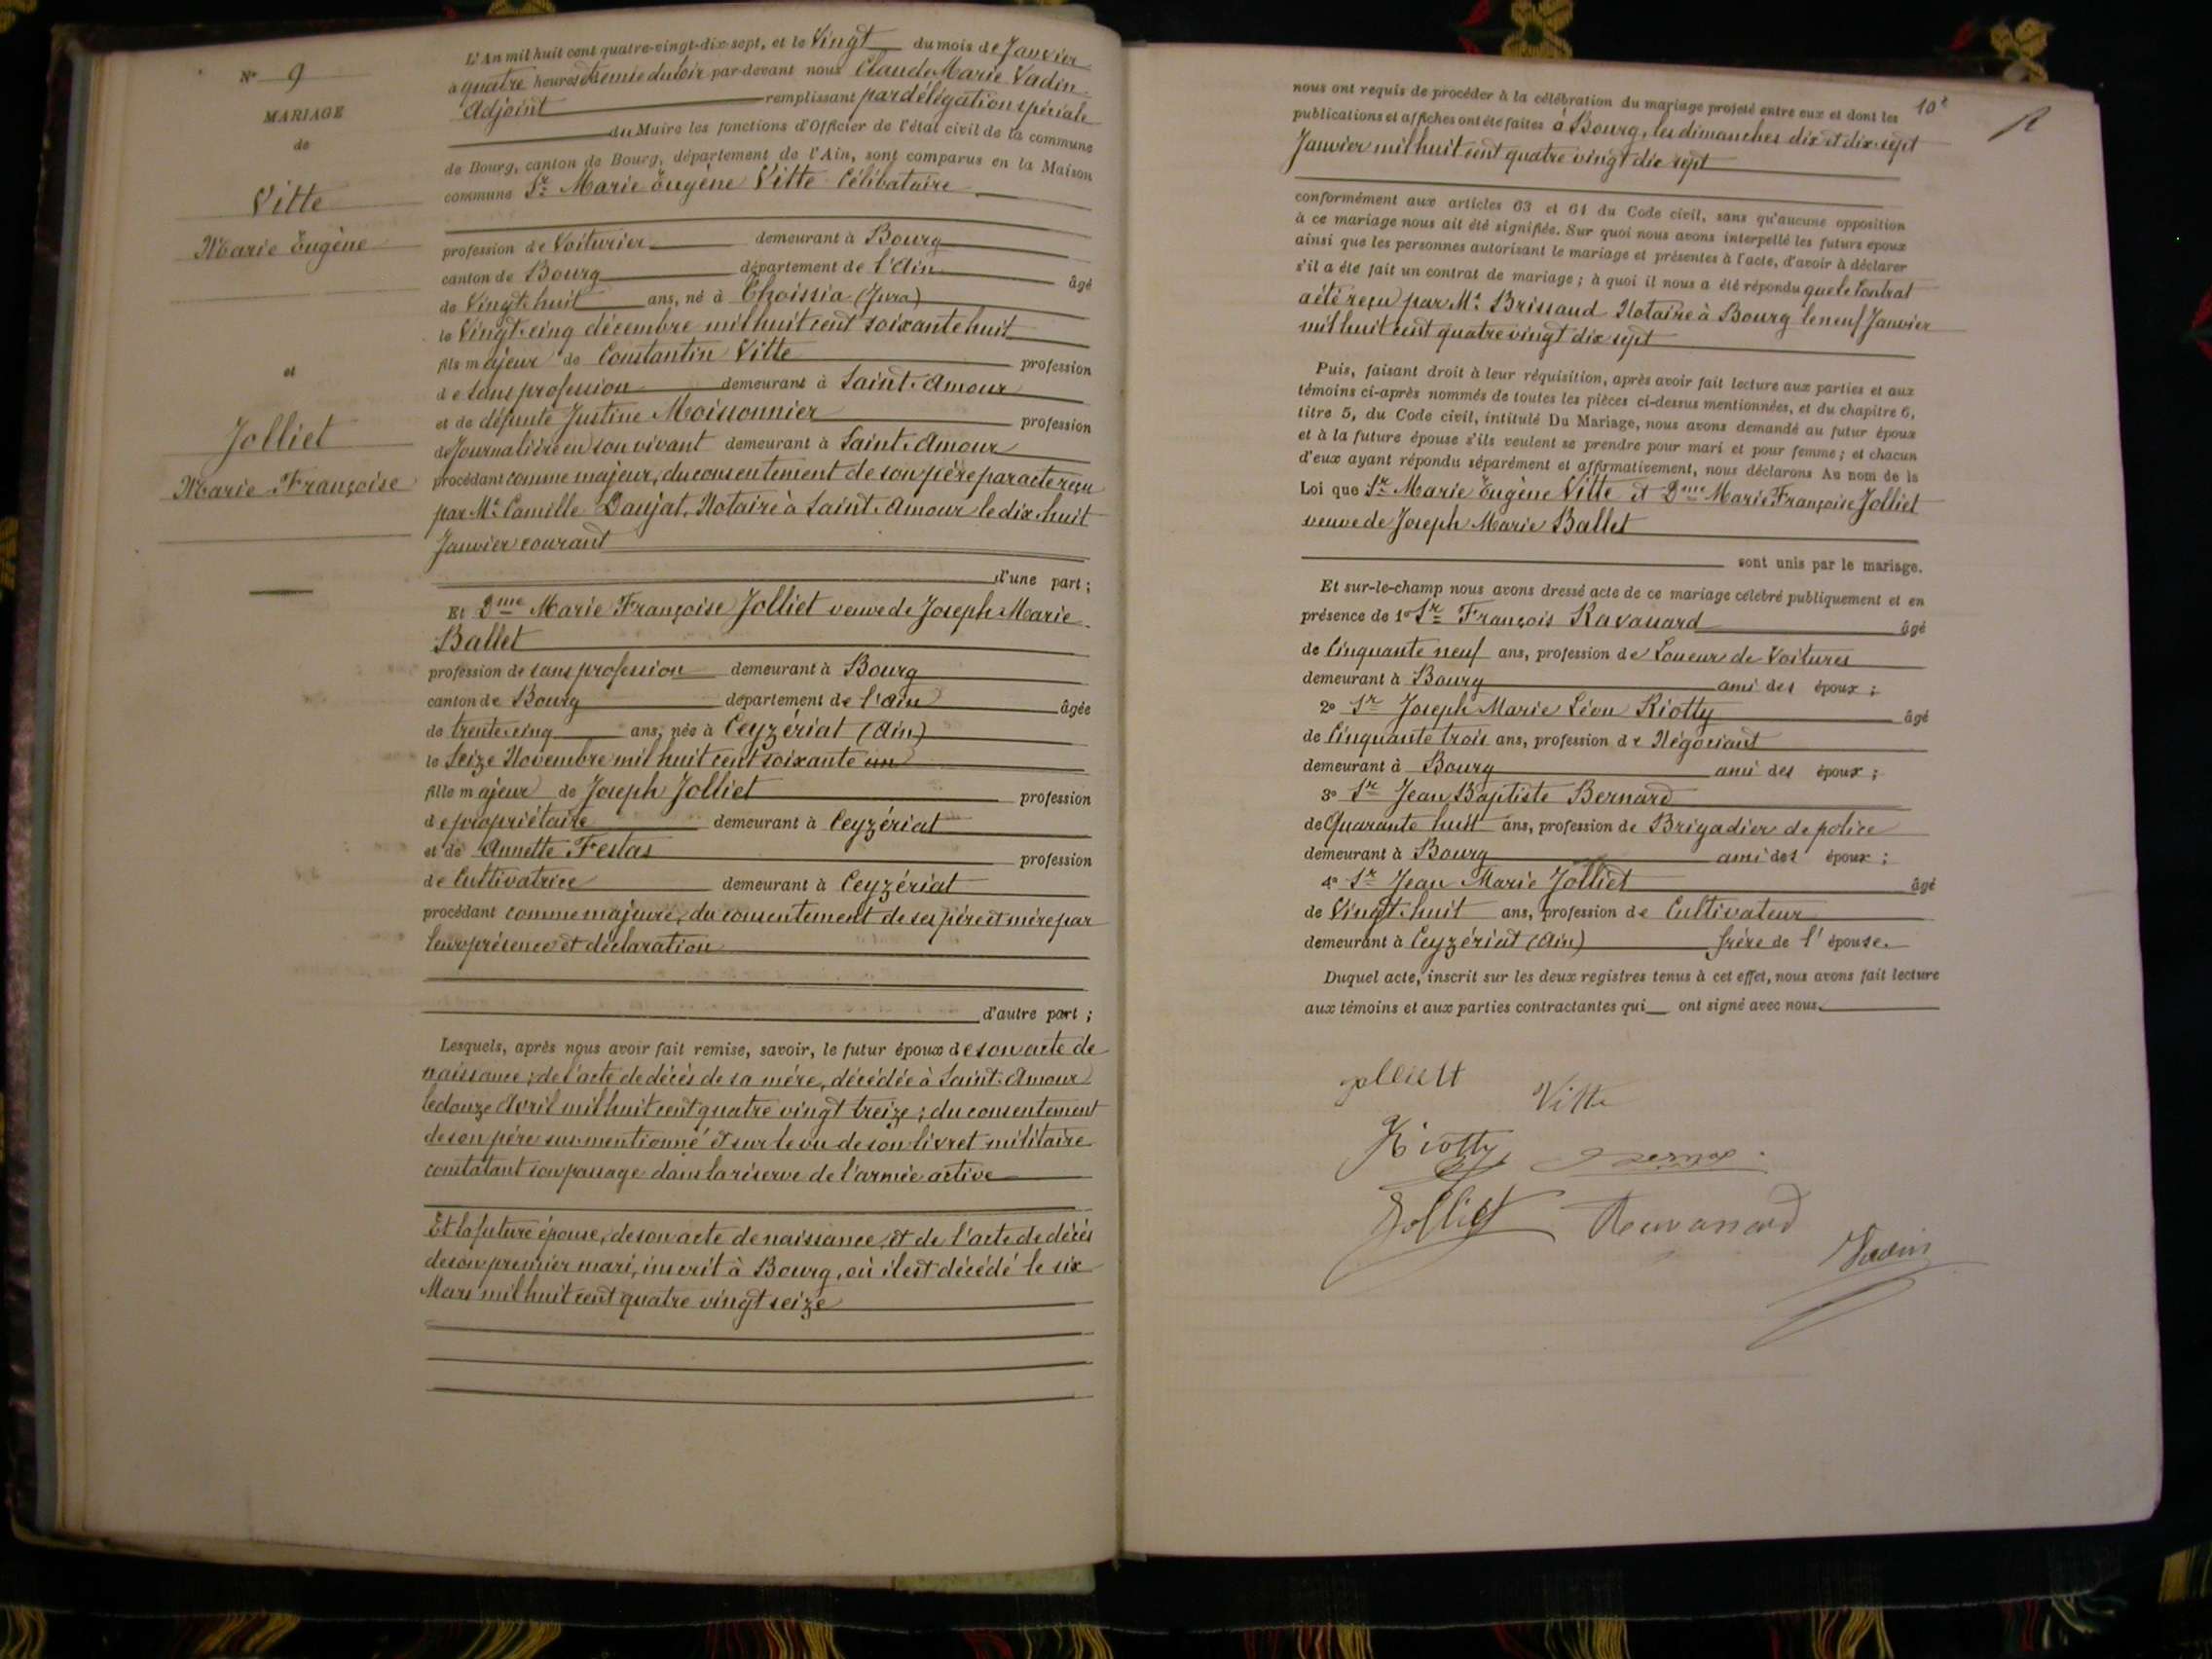 N° 9
MARIAGE
de
Vitte
Marie Eugène
et
Jolliet
Marie Françoise
L'An mil huit cent quatre-vingt-dix-sept, et le Vingt du mois de Janvier
à quatre heures et demie du soir par-devant nous Claude Marie Vadin
Adjoint remplissant par délégation spéciale
du Maire les fonctions d'Officier de l'état civil de la commune
de Bourg, canton de Bourg, département de l'Ain, sont comparus en la Maison
commune Sr Marie Eugène Vitte Célibataire
profession de Voiturier demeurant à Bourg
canton de Bourg département de l'Ain âgé
de Vingt-huit ans, né à Choissia (Jura)
le Vingt-cinq décembre mil huit cent soixante huit
fils majeur de Constantin Vitte profession
de sans profession demeurant à Saint-Amour
et de défunte Justine Moissonnier profession
de Journalière en son vivant demeurant à Saint-Amour
procédant comme majeur, du consentement de son père par acte reçu
par Me Camille Daujat, Notaire à Saint-Amour le dix-huit
Janvier courant
d'une part ;
Et Dme Marie Françoise Jolliet veuve de Joseph Marie
Ballet
profession de sans profession demeurant à Bourg
canton de Bourg département de l'Ain âgée
de trente-cinq ans, née à Ceyzériat (Ain)
le Seize Novembre mil huit cent soixante un
fille majeur de Joseph Jolliet profession
de propriétaire demeurant à Ceyzériat
et de Annette Festas profession
de Cultivatrice demeurant à Ceyzériat
procédant comme majeure, du consentement de ses père et mère par
leur présence et déclaration
d'autre part ;
Lesquels, après nous avoir fait remise, savoir, le futur époux de son acte de
naissance ; de l'acte de décès de sa mère, décédée à Saint-Amour
le douze Avril mil huit cent quatre vingt treize ; du consentement
de son père sus-mentionné et sur le vu de son livret militaire
constatant son passage dans la réserve de l'armée active
Et la future épouse, de son acte de naissance, et de l'acte de décès
de son premier mari, inscrit à Bourg, où il est décédé le six
Mars mil huit cent quatre vingt seize
10e
nous ont requis de procéder à la célébration du mariage projeté entre eux et dont les
publications et affiches ont été faites à Bourg, les dimanches dix et dix-sept
Janvier mil huit cent quatre vingt dix sept
conformément aux articles 63 et 64 du Code civil, sans qu'aucune opposition
à ce mariage nous ait été signifiée. Sur quoi nous avons interpellé les futurs époux
ainsi que les personnes autorisant le mariage et présentes à l'acte, d'avoir à déclarer
s'il a été fait un contrat de mariage ; à quoi il nous a été répondu que le Contrat
a été reçu par Me Brissaud Notaire à Bourg le neuf Janvier
mil huit cent quatre vingt dix sept
Puis, faisant droit à leur réquisition, après avoir fait lecture aux parties et aux
témoins ci-après nommés de toutes les pièces ci-dessus mentionnées, et du chapitre 6,
titre 5, du Code civil, intitulé Du Mariage, nous avons demandé au futur époux
et à la future épouse s'ils veulent se prendre pour mari et pour femme ; et chacun
d'eux ayant répondu séparément et affirmativement, nous déclarons Au nom de la
Loi que Sr Marie Eugène Vitte et Dme Marie Françoise Jolliet
veuve de Joseph Marie Ballet
sont unis par le mariage.
Et sur-le-champ nous avons dressé acte de ce mariage célébré publiquement et en
présence de 1° Sr François Ravassard âgé
de Cinquante neuf ans, profession de Loueur de Voitures
demeurant à Bourg ami des époux ;
2° Sr Joseph Marie Léon Riotty âgé
de Cinquante trois ans, profession de Négociant
demeurant à Bourg ami des époux ;
3° Sr Jean Baptiste Bernard
de Quarante huit ans, profession de Brigadier de police
demeurant à Bourg ami des époux ;
4° Sr Jean Marie Jolliet âgé
de Vingt-huit ans, profession de Cultivateur
demeurant à Ceyzériat (Ain) frère de l'épouse.
Duquel acte, inscrit sur les deux registres tenus à cet effet, nous avons fait lecture
aux témoins et aux parties contractantes qui ont signé avec nous.
Vitte
Riotty
Jolliet Ravassard
Vadin